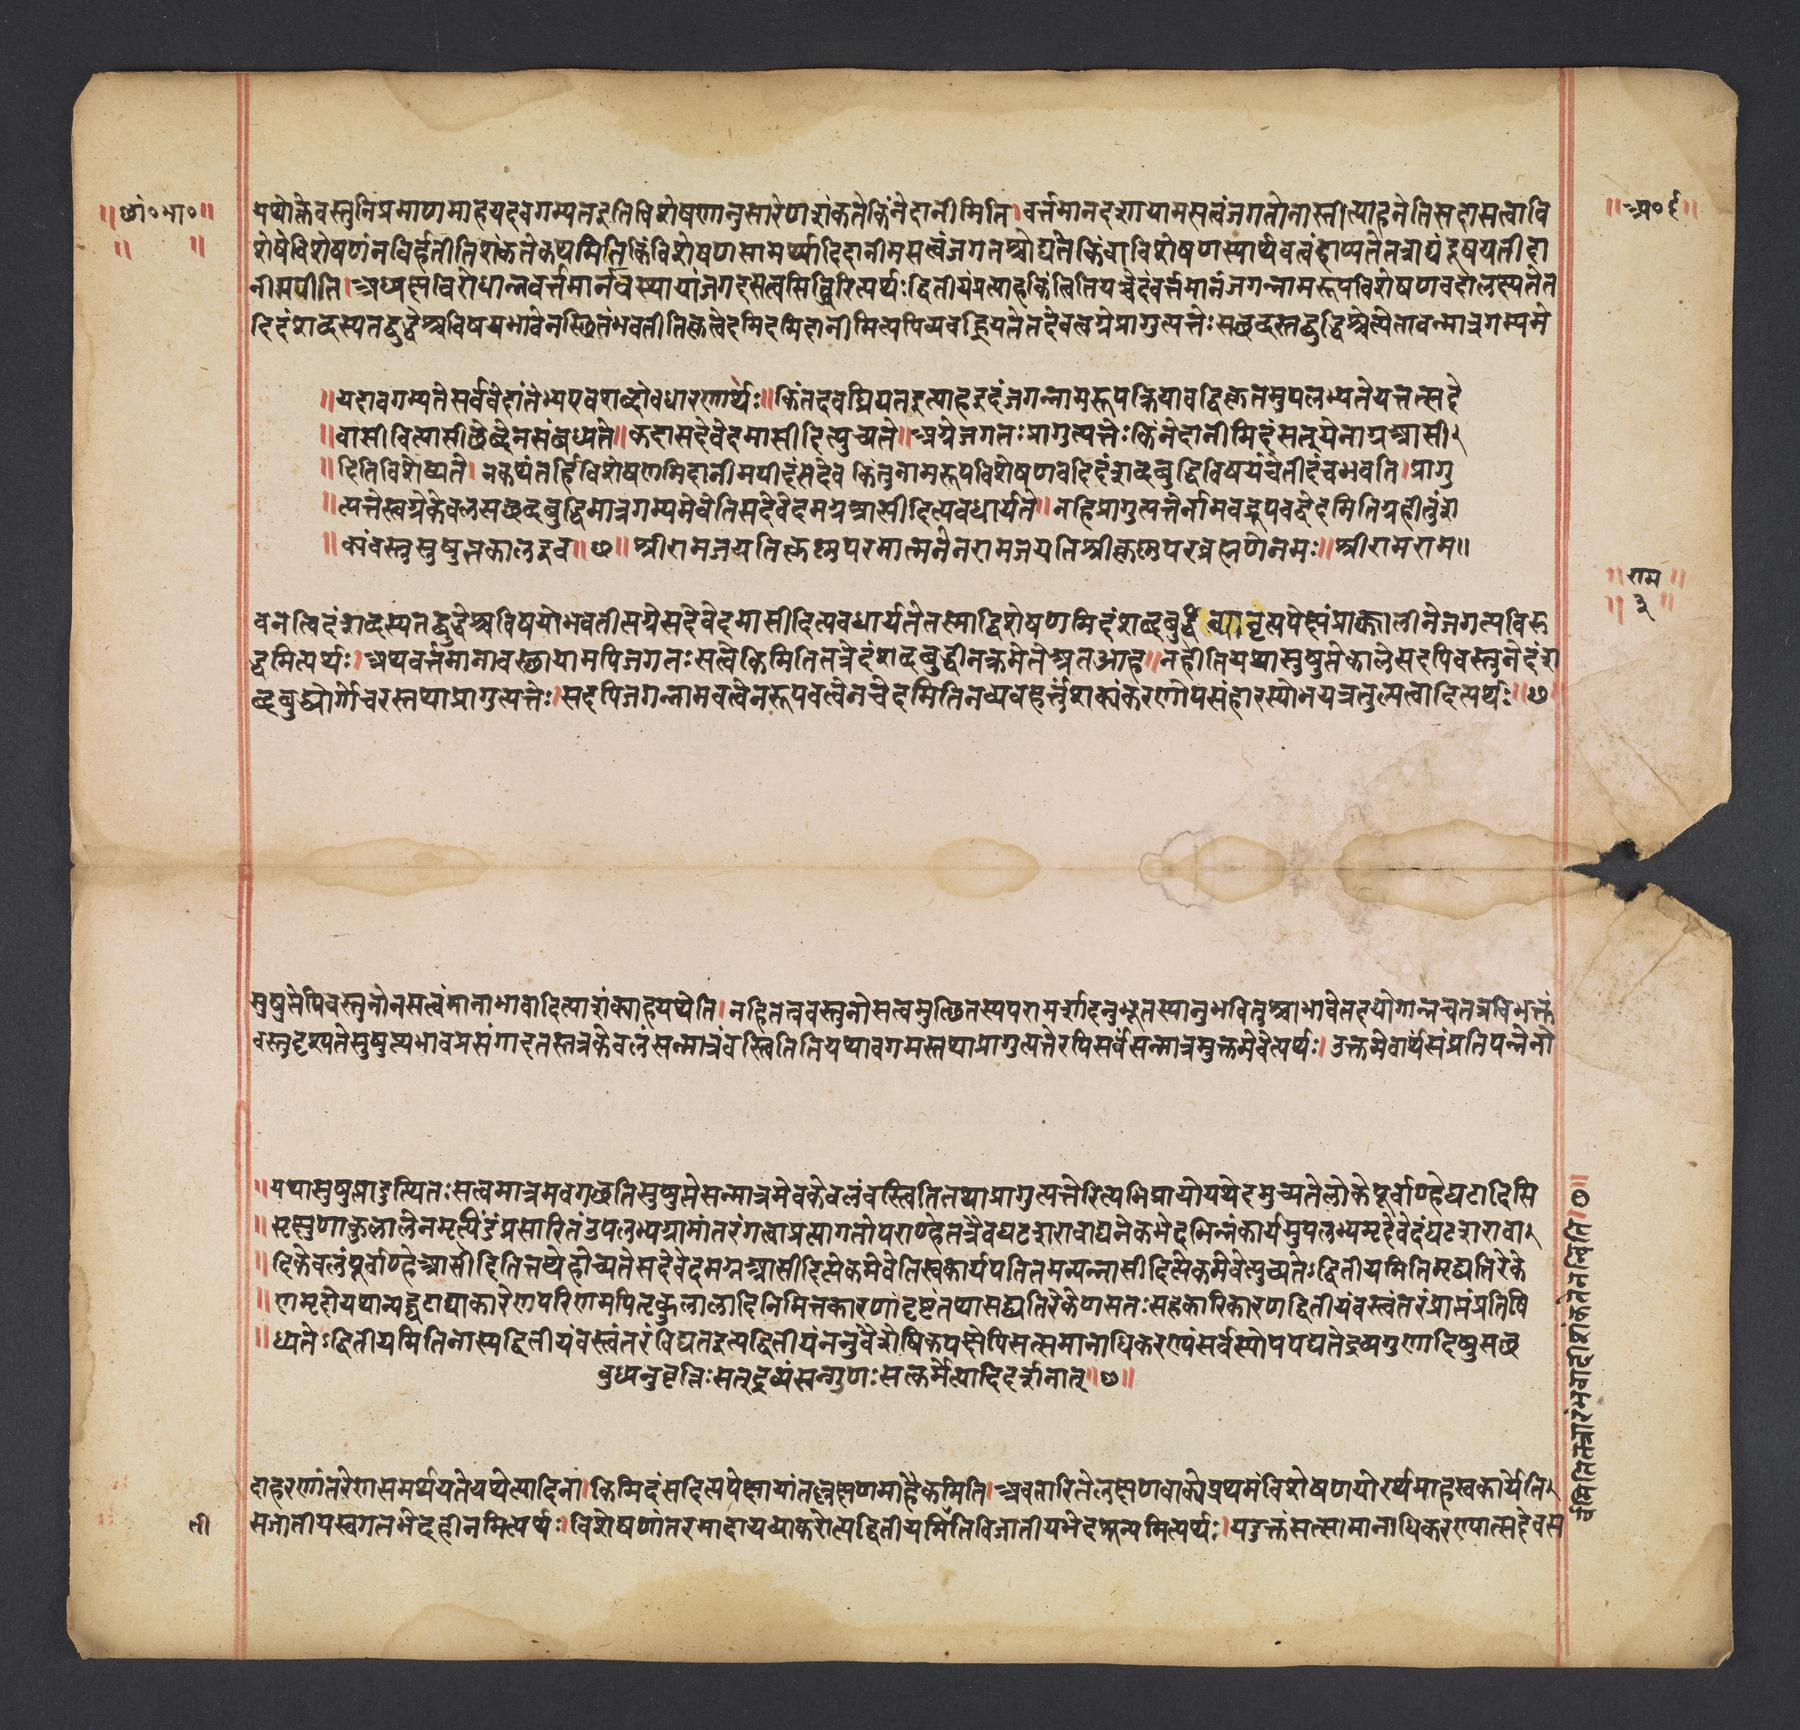 ॥छां०भा०॥
॥ ॥
॥अ०६॥
यथोक्तेवस्तुनिप्रमाणमाहयदवगम्यतइतिविशेषणानुसारेणशंकतेकिंनेदानीमिति।वर्त्तमानदशायामसत्वंजगतोनास्तीत्याहनेतिसदासत्वावि
शेषेविशेषणंनविर्हतीतिशंकतेकथमितिकिंविशेषणसामर्थ्यादिदानीमसत्वंजगतश्चोद्यतेकिंवाविशेषणस्यार्थवत्वंहाप्यतेतत्राद्यंदूषयतीदा
नीमपीति।अध्यक्षविरोधान्नवर्त्तमानवस्थायांजगदसत्वसिद्धिरित्यर्थः।द्वितीयंप्रत्याहकिंत्वितियच्चेदंवर्त्तमानंजगन्नामरूपविशेषणवदालक्ष्यतेत
दिदंशब्दस्यतद्बुद्धेश्चविषयभावेनस्थितंभवतीतिकृत्वेदमिदमिदानीमित्यपिव्यवह्रियतेतदेवत्वग्रेप्रागुत्पत्तेःसच्छब्दस्तद्बुद्धिश्चेत्येतावन्मात्रगम्यमे
॥यदावगम्यतेसर्ववेदांतेभ्यएवशब्दोवधारणार्थः॥किंतदवध्रियतइत्याहइदंजगन्नामरूपक्रियावद्विकृतमुपलभ्यतेयत्तत्सदे
॥वासीदित्यासीच्छब्देनसंबध्यते॥कदासदेवेदमासीदित्युच्यते॥अग्रेजगतःप्रागुत्पत्तेःकिंनेदानीमिदंसत्येनाग्रआसी
॥दितिविशेष्यते।नकथंतर्हिविशेषणमिदानीमपीदंसदेवकिंतुनामरूपविशेषणवदिदंशब्दबुद्धिविषयंचेतीदंचभवति।प्रागु
॥त्पत्तेस्त्वग्रेकेवलसच्छब्दबुद्धिमात्रगम्यमेवेतिसदेवेदमग्रआसीदित्यवधार्यते॥नहिप्रागुत्पत्तेर्नामवद्रूपवद्वेदमितिग्रहीतुंश
॥क्यंवस्तुसुषुप्तकालइव॥छ॥श्रीरामजयतिकृष्णपरमात्मनेनरामजयतिश्रीकृष्णपरब्रह्मणेनमः॥श्रीरामराम॥
॥राम॥
॥३॥
वनत्विदंशब्दस्यतद्बुद्धेश्चविषयोभवतीसग्रेसदेवेदमासीदित्यवधार्यतेतस्माद्विशेषणमिदंशब्दबुद्धी
द्धमित्यर्थः।अथवर्त्तमानावस्थायामपिजगतःसत्वेकिमितितत्रेदंशब्दबुद्धीनक्रमेतेअतआह॥नहीतियथासुषुप्तेकालेसदपिवस्तुनेदंश
ब्दबुद्ध्योर्गोचरस्तथाप्रागुत्पत्तेः।सदपिजगन्नामवत्वेनरूपवत्वेनचेदमितिनव्यवहर्त्तुंशक्यंकरणोपसंहारस्योभयत्रतुल्यत्वादित्यर्थः॥छ
सुषुप्तेपिवस्तुनोनसत्वंमानाभावादित्याशंक्याहयथेति।नहितत्रवस्तुनोसत्वमुत्थितस्यपरामर्शादनुभूतस्यानुभवितुश्चाभावेतदयोगान्नचतत्रविभक्तं
वस्तुदृश्यतेसुषुप्त्यभावप्रसंगादतस्तत्रकेवलंसन्मात्रंवस्त्वितियथावगमस्तथाप्रागुत्पत्तेरपिसर्वंसन्मात्रमुक्तमेवेत्यर्थः।उक्तमेवार्थंसंप्रतिपन्नेनो
॥यथासुषुप्तादुत्थितःसत्वमात्रमवगच्छतिसुषुप्तेसन्मात्रमेवकेवलंवस्त्वितितथाप्रागुत्पत्तेरित्यभिप्रायोयथेदमुच्यतेलोकेपूर्वाण्हेघटादिसि
॥सृक्षुणाकुलालेनमृत्पिंडंप्रसारितंउपलभ्यग्रामांतरंगत्वाप्रत्यागतोपराण्हेतत्रैवघटशरावाद्यनेकभेदभिन्नंकार्यमुपलभ्यमृदेवेदंघटशरावा
॥दिकेवलंपूर्वाण्हेआसीदितितथेहोच्यतेसदेवेदमग्रआसीदित्येकमेवेतिस्वकार्यपतितमन्यन्नासीदित्येकमेवेत्युच्यतेऽद्वितीयमितिमृद्व्यतिरेके
॥णमृदोयथान्यद्घटाद्याकारेणपरिणमयितृकुलालादिनिमित्तकारणंदृष्टंतथासद्व्यतिरेकेणसतःसहकारिकारणद्वितीयंवस्त्वंतरंप्राप्तंप्रतिषि
॥ध्यतेऽद्वितीयमितिनास्यद्वितीयंवस्त्वंतरंविद्यतइत्यद्वितीयंननुवैशेषिकपक्षेपिसत्समानाधिकरण्यंसर्वस्योपपद्यतेद्रव्यगुणादिषुसच्छ
बुध्यनुवृत्तिःसद्द्रव्यंसन्गुणःसत्कर्मेत्यादिदर्शनात्॥छ॥
दाहरणांतरेणसमर्थयतेयथेत्यादिना।किमिदंसदित्यपेक्षायांतल्लक्षणमाहैकमिति।अवतारितेलक्षणवाक्येप्रथमंविशेषणयोरर्थमाहस्वकार्येति
ती
सजातीयस्वगतभेदहीनमित्यर्थः।विशेषणांतरमादायव्याकरोत्यद्वितीयमितिविजातीयभेदशून्यमित्यर्थः।यदुक्तंसत्सामानाधिकरण्यात्सदेवस